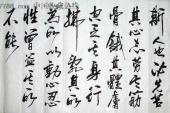 斯人也必先苦
其心志勞其筋
骨餓其體膚
空乏其身行
拂亂其所
為所以動心忍
性曾益其所
不能